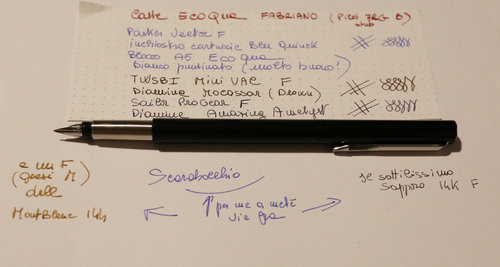 Carte ECOQua FABRIANO (Pilot 78G B)
stub
Parker Vector F
inchiostro cartuccia Ben Quinck
Blocco A5 EcoQua
Bianco puntinato (molto buono!)
TWSBI Mini VAC F
Diamine Mocassar (Dromi)
Sailor ProGear F
Diamine Amazing Amethyst
e un F
(quasi M)
della
MontBlanc 144
Scarabocchio
↑ per me a metà
via fra
se sottilissimo
Sapporo 14K F